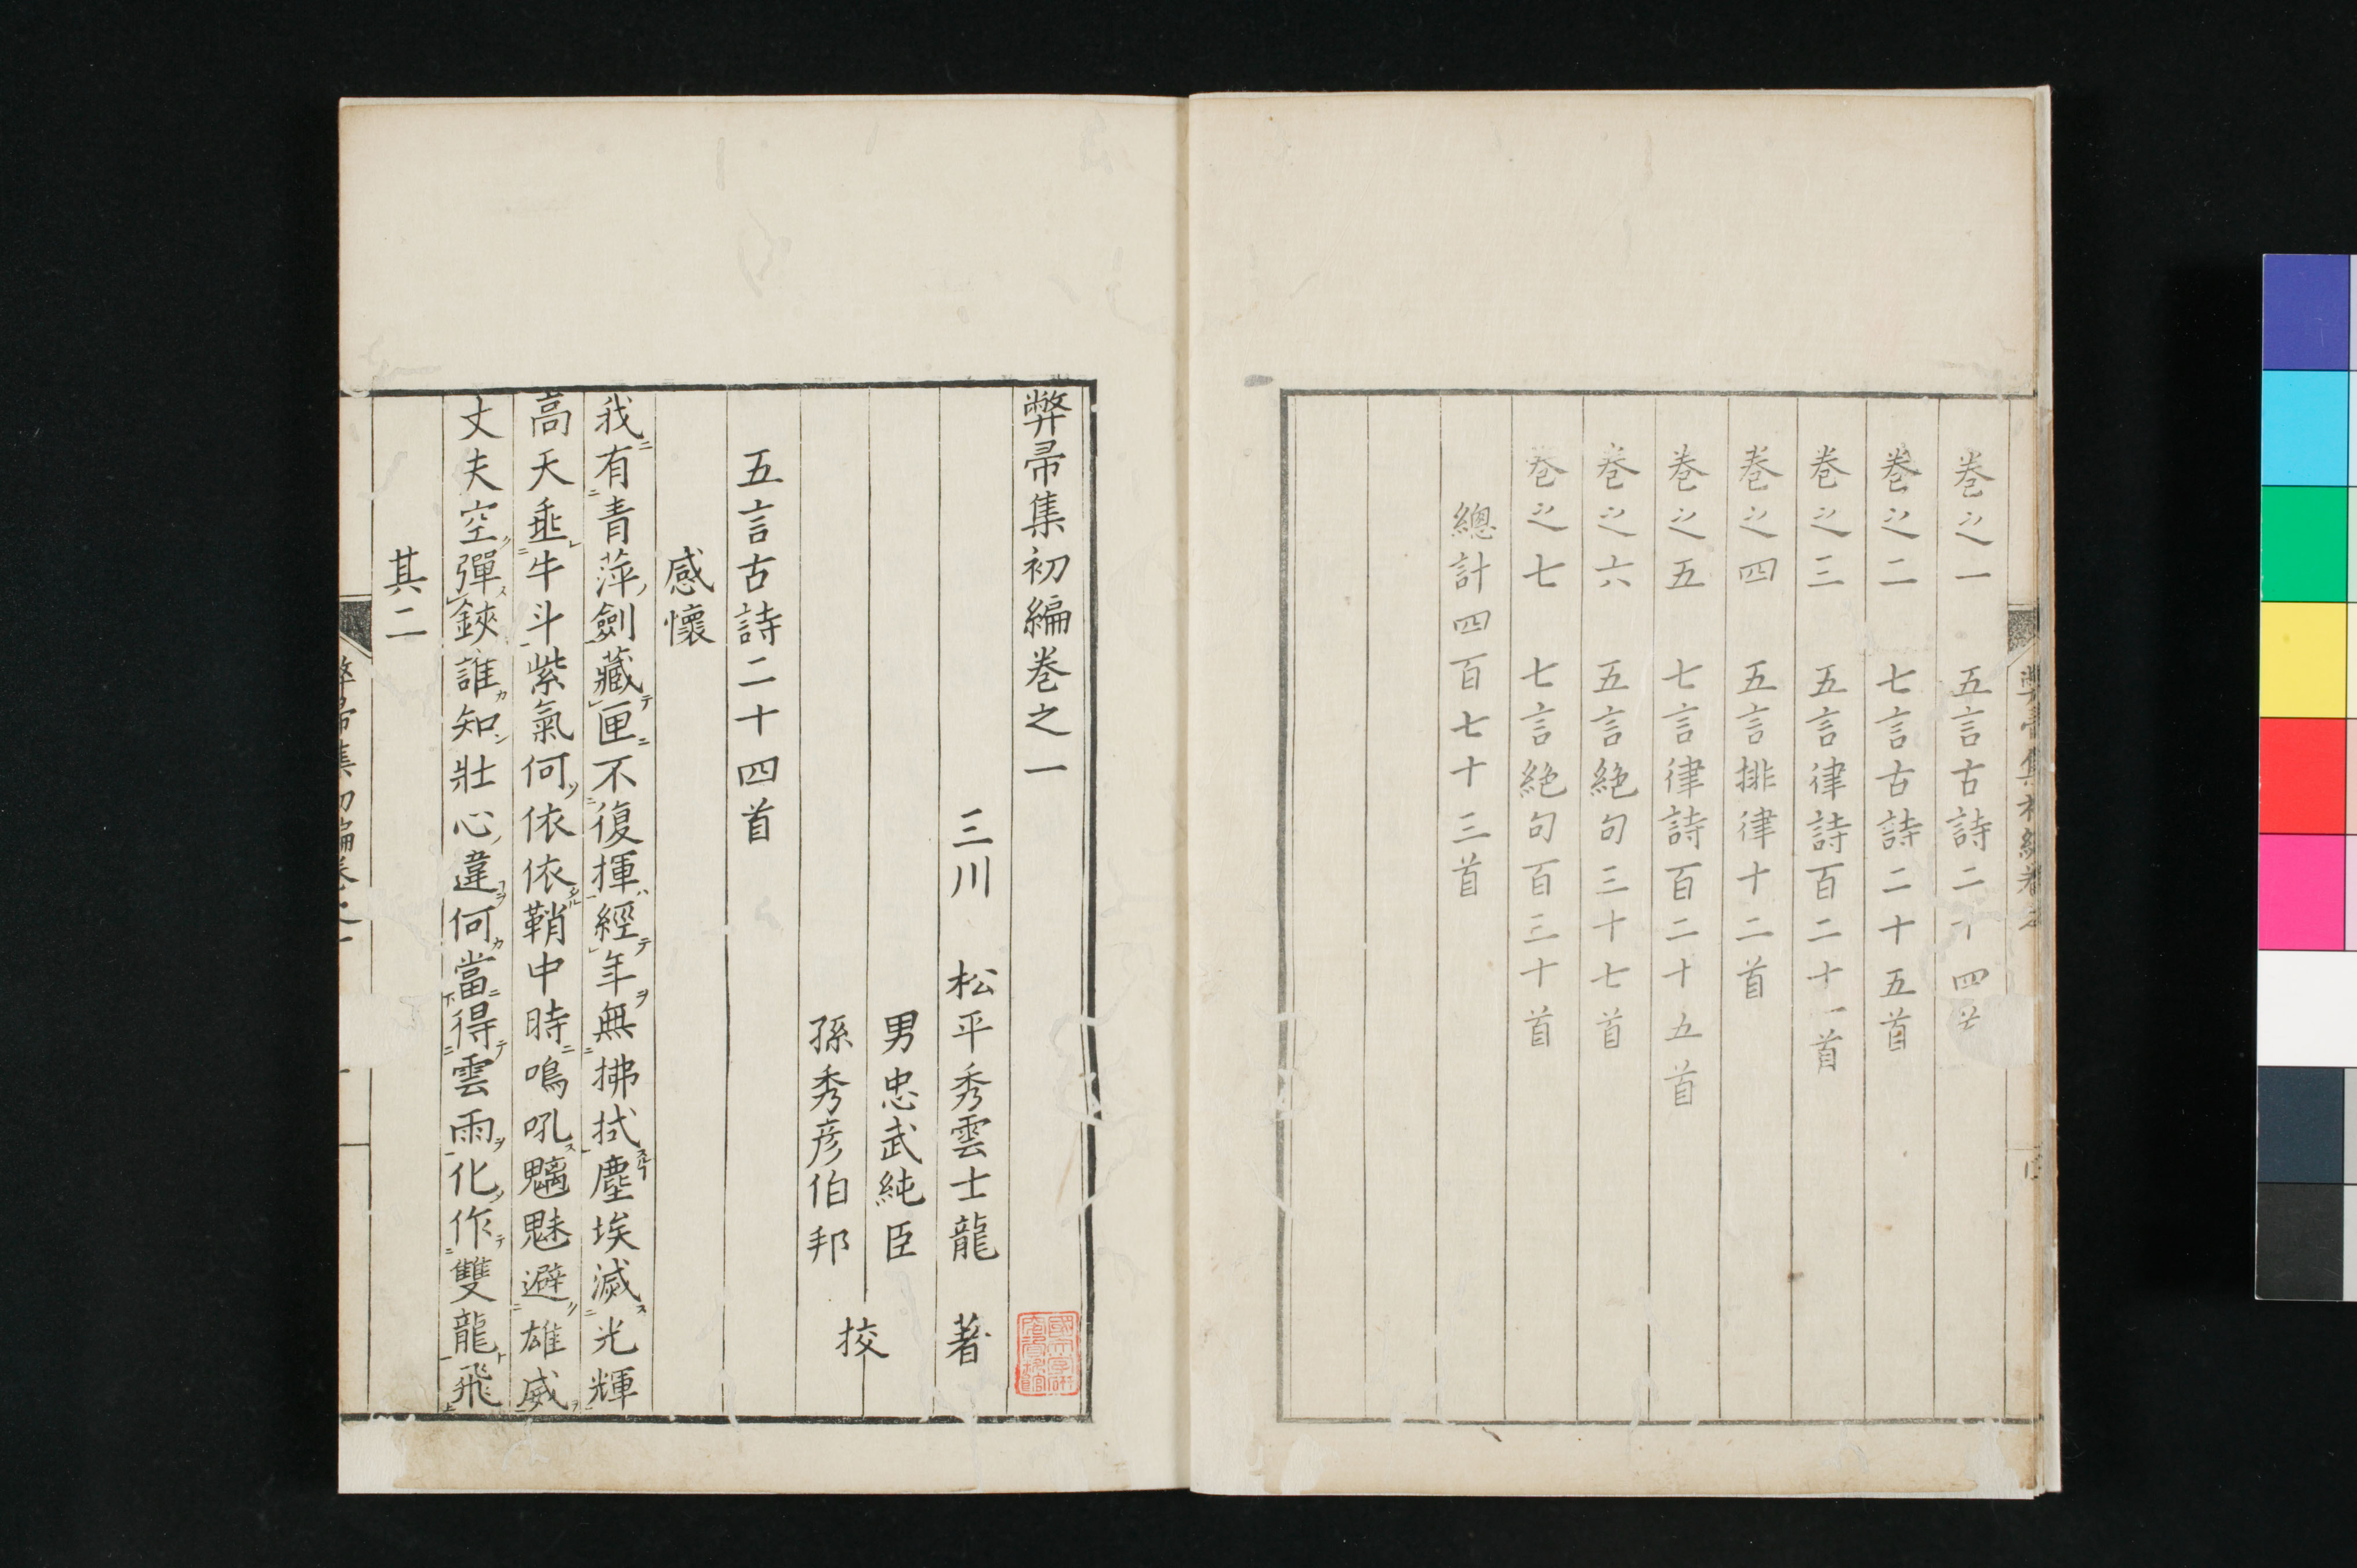 巻之一　五言古詩二十四首
巻之二　七言古詩二十五首
巻之三　五言律詩百二十一首
巻之四　五言排律十二首
巻之五　七言律詩百二十五首
巻之六　五言絶句三十七首
巻之七　七言絶句百三十首
總計四百七十三首
弊帚集初編巻之一
三川　松平秀雲士龍　著
男忠武純臣
孫秀彦伯邦
挍
五言古詩二十四首
感懷
我有青萍劍藏匣不復揮經年無拂拭塵埃滅光輝
高天垂牛斗紫氣何依依鞘中時鳴吼魑魅避雄威
丈夫空彈鋏誰知壯心違何當得雲雨化作雙龍飛
其二
弊帚集初編巻之一